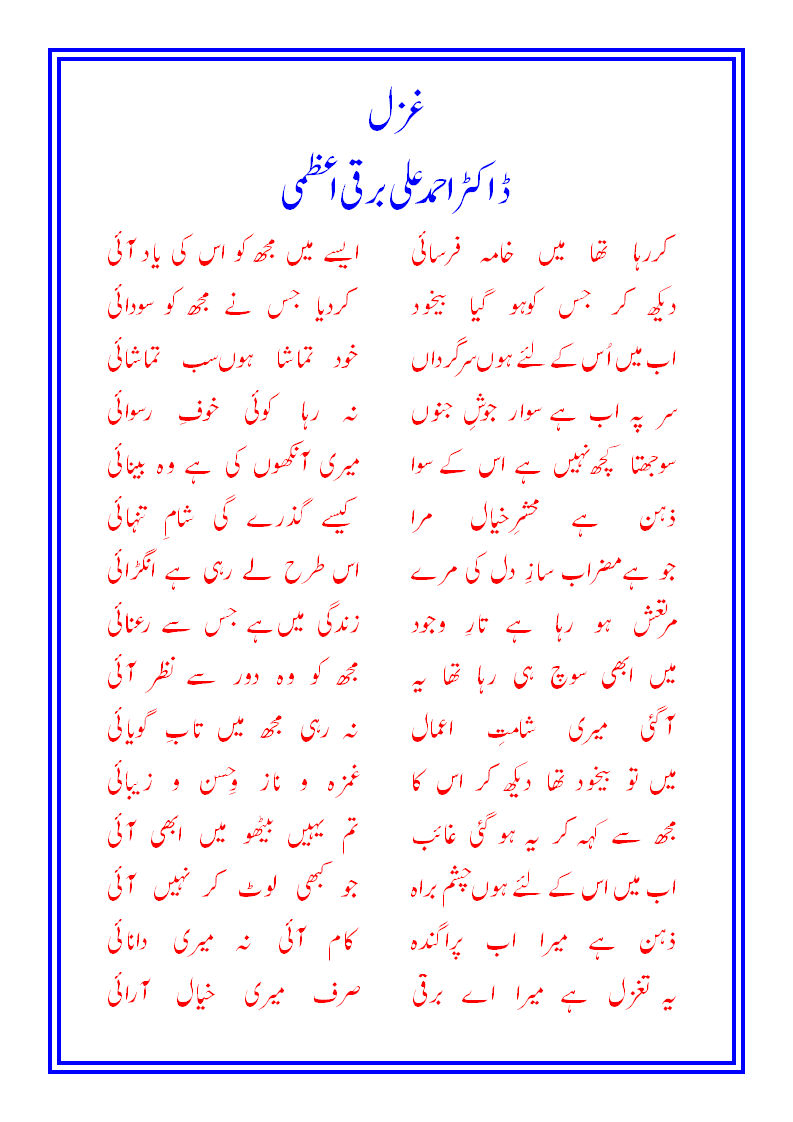 غزل
ڈاکٹر احمد علی برقی اعظمی
کررہا تھا میں خامہ فرسائی ایسے میں مجھ کو اس کی یاد آئی
دیکھ کر جس کو ہو گیا بیخود کردیا جس نے مجھ کو سودائی
اب میں اُس کے لئے ہوں سرگرداں خود تماشا ہوں سب تماشائی
سر پہ اب ہے سوار جوشِ جنوں نہ رہا کوئی خوفِ رسوائی
سوجھتا کچھ نہیں ہے اس کے سوا میری آنکھوں کی ہے وہ بینائی
ذہن ہے محشرِ خیال مرا کیسے گذرے گی شامِ تنہائی
جو ہے مضراب سازِ دل کی مرے اس طرح لے رہی ہے انگڑائی
مرتعش ہو رہا ہے تارِ وجود زندگی میں ہے جس سے رعنائی
میں ابھی سوچ ہی رہا تھا یہ مجھ کو وہ دور سے نظر آئی
آگئی میری شامتِ اعمال نہ رہی مجھ میں تابِ گویائی
میں تو بیخود تھا دیکھ کر اس کا غمزہ و ناز و حِسن و زیبائی
مجھ سے کہہ کر یہ ہو گئی غائب تم یہیں بیٹھو میں ابھی آئی
اب میں اس کے لئے ہوں چشم براہ جو کبھی لوٹ کر نہیں آئی
ذہن ہے میرا اب پراگندہ کام آئی نہ میری دانائی
یہ تغزل ہے میرا اے برقی صرف میری خیال آرائی